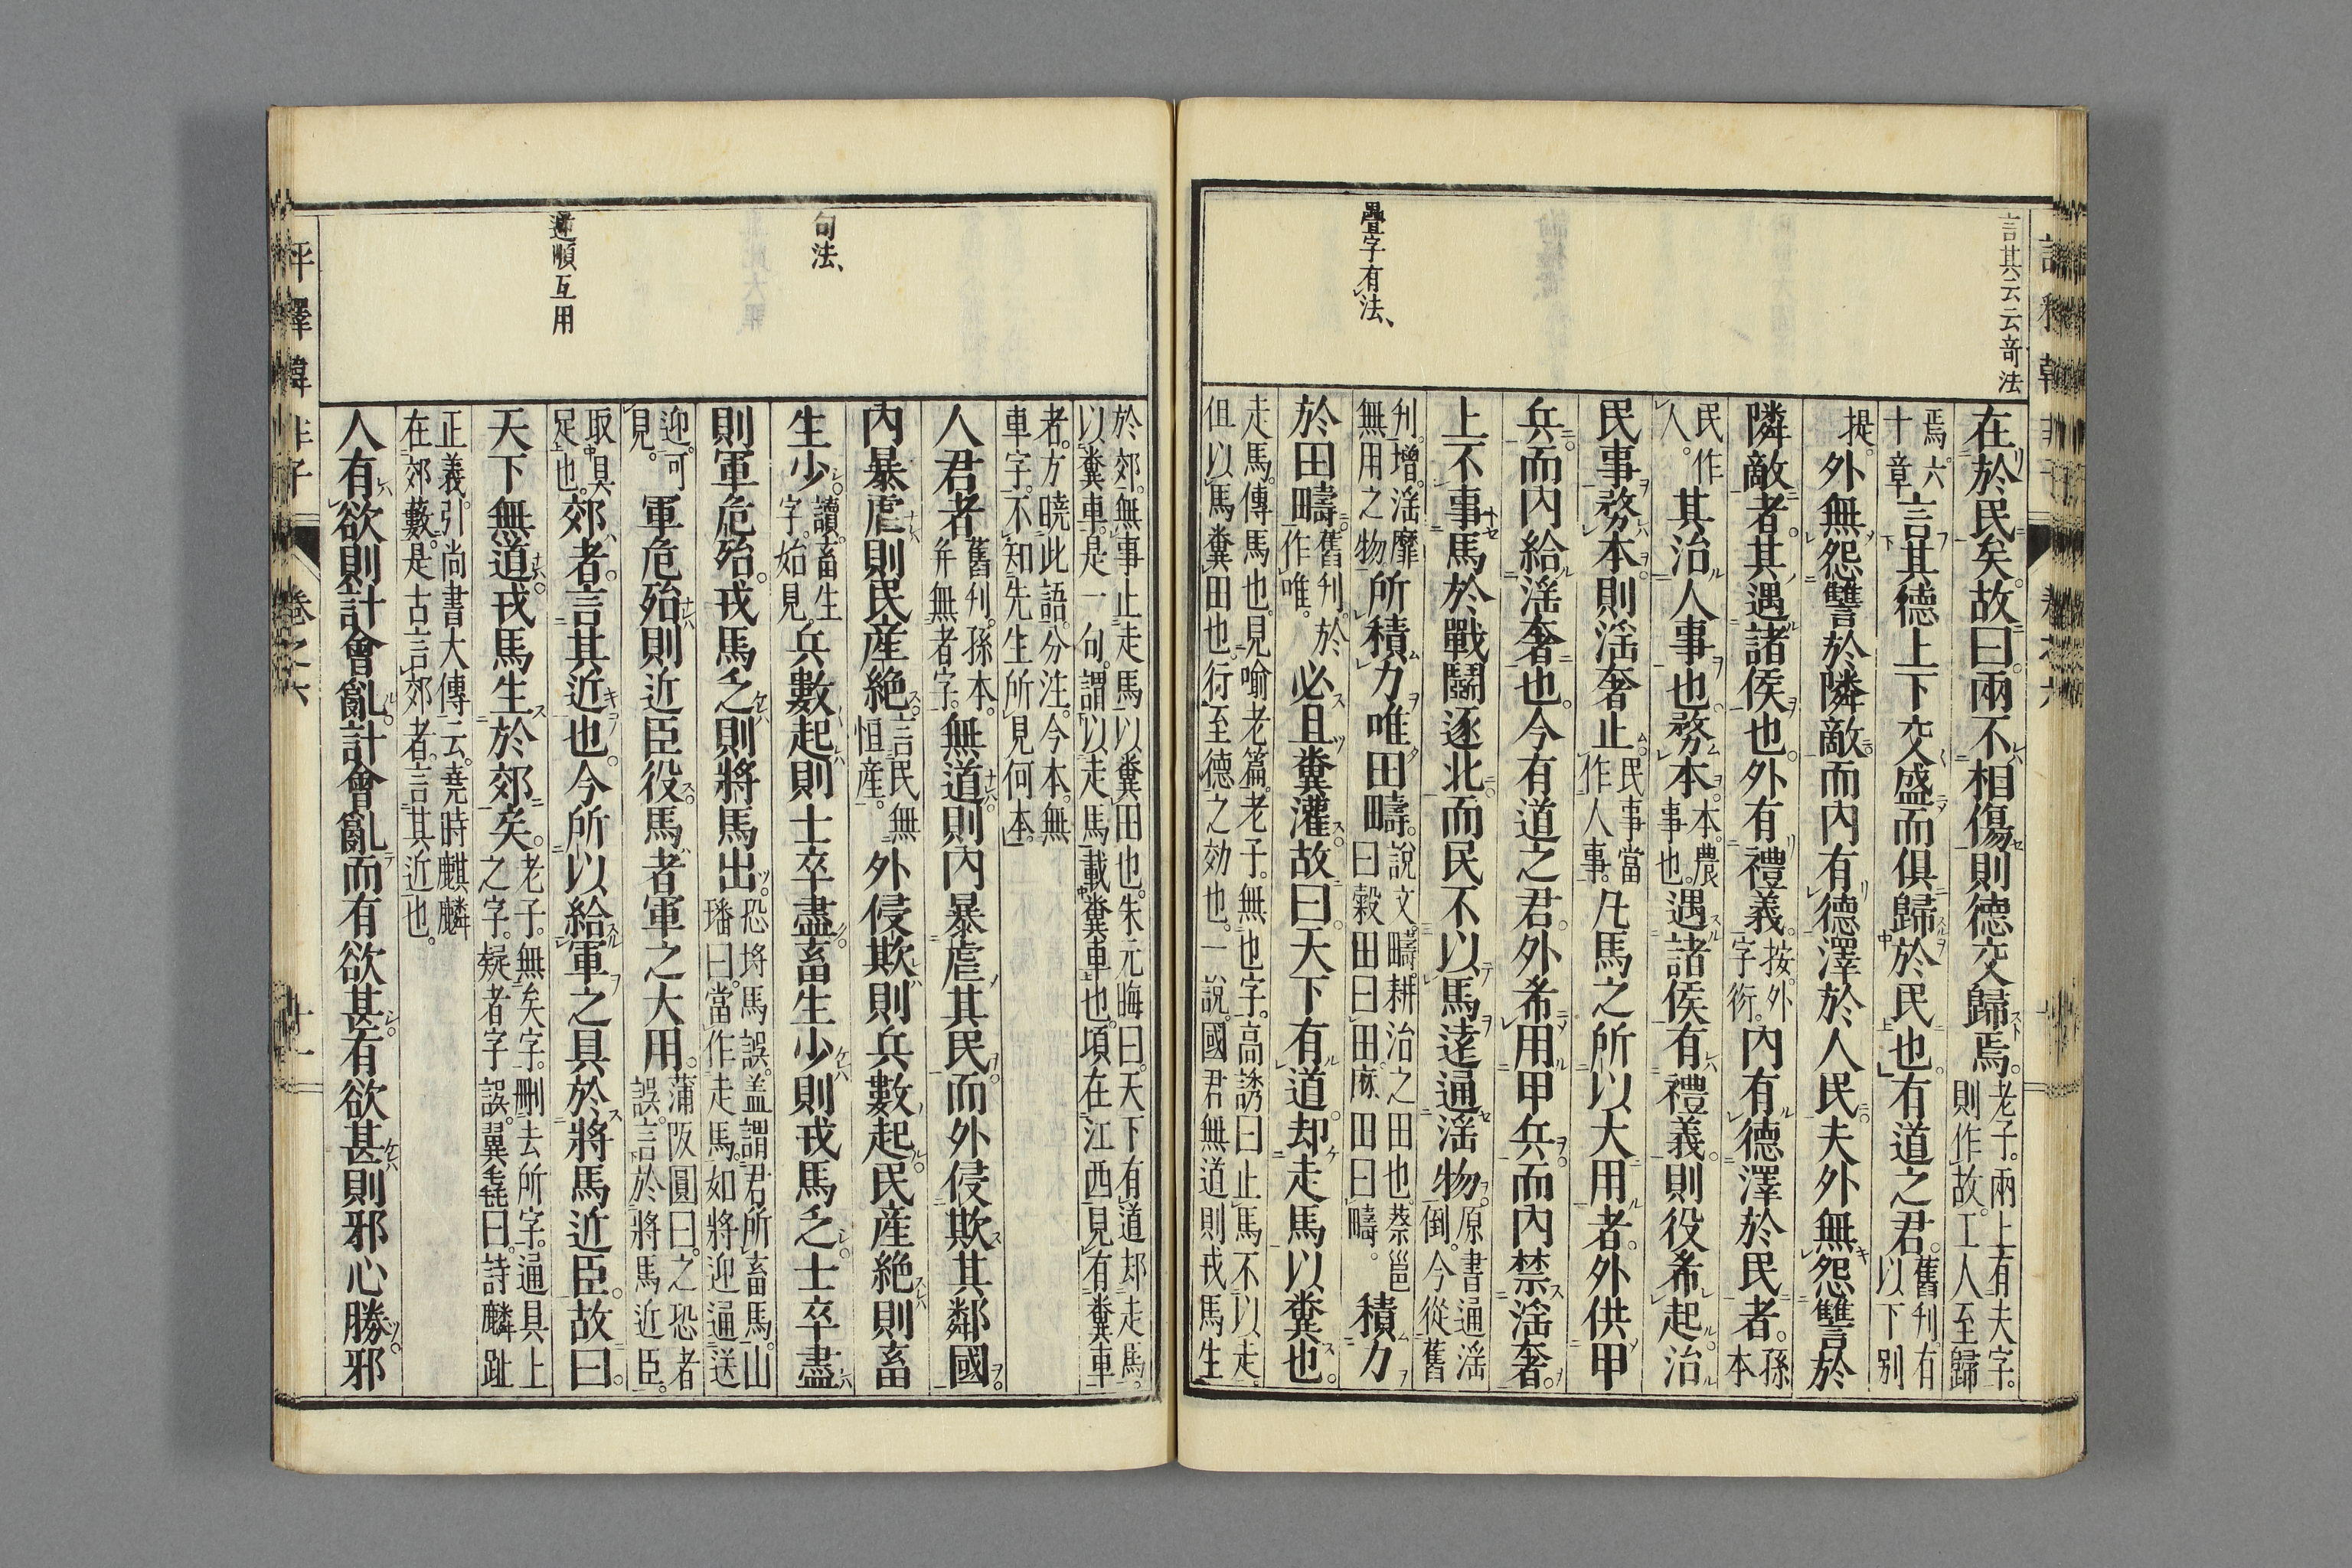 言其云云奇法
在於民矣。故曰。兩不相傷則德交歸焉。老子。兩上有夫字。則作故。工人至歸
焉。六十章言其德上下交盛而俱歸於民也。有道之君。舊刋。有以下別
提。外無怨讐於隣敵。而内有德澤於人民。夫外無怨讐於
隣敵者。其遇諸侯也。外有禮義。按。外字衍。内有德澤於民者。孫本
民作人。其治人事也。務本。本。農事也。遇諸侯有禮義。則役希起。治
民事務本。則滛奢止。民事當作人事。凡馬之所以大用者。外供甲
兵。而内給滛奢也。今有道之君。外希用甲兵。而内禁滛奢。
上不事馬於戰鬭逐北。而民不以馬逺通滛物。原書通滛倒。今從舊
刋。增滛靡無用之物所積力唯田疇。說文。疇耕治之田也。蔡邕曰穀田曰田。麻田曰疇。積力
疊字有法、
於田疇。舊刋於作唯。必且糞灌。故曰。天下有道。却走馬以糞也。
走馬。傳馬也。見喻老篇。老子。無也字。高誘曰止馬不以走。但以馬糞田也。行至德之効也。一說。國君無道則戎馬生
於郊。無事止走馬以糞田也。朱元晦曰。天下有道却走馬。以糞車。是一句。謂以走馬載糞車也。頃在江西見有糞車
者。方曉此語。分注。今本。無車字。不知先生所見何本。
人君者舊刋。孫本。并無者字。無道。則内暴虐其民。而外侵欺其鄰國。
内暴虐則民産絶。言民無恒産。外侵欺則兵數起。民産絶則畜
生少。讀畜生字。始見。兵數起則士卒盡。畜生少則戎馬乏。士卒盡
句法、
則軍危殆。戎馬乏則將馬出。恐將馬誤。盖謂君所畜馬。山璠曰。當作走馬。如將迎通送
迎。可見。軍危殆則近臣役。馬者軍之大用。蒲阪圓曰。之恐者誤。言於將馬近臣。
取具足也。郊者。言其近也。今所以給軍之具於將馬近臣。故曰。
逆順互用
天下無道。戎馬生於郊矣。老子。無矣字。刪去所字。通具上之字。疑者字誤。翼毳曰。詩麟趾
正義。引尚書大傳云。堯時麒麟在郊藪。是古言郊者。言其近也。
人有欲則計會亂。計會亂而有欲甚。有欲甚則邪心勝。邪
評釋韓非子 卷之六 十一